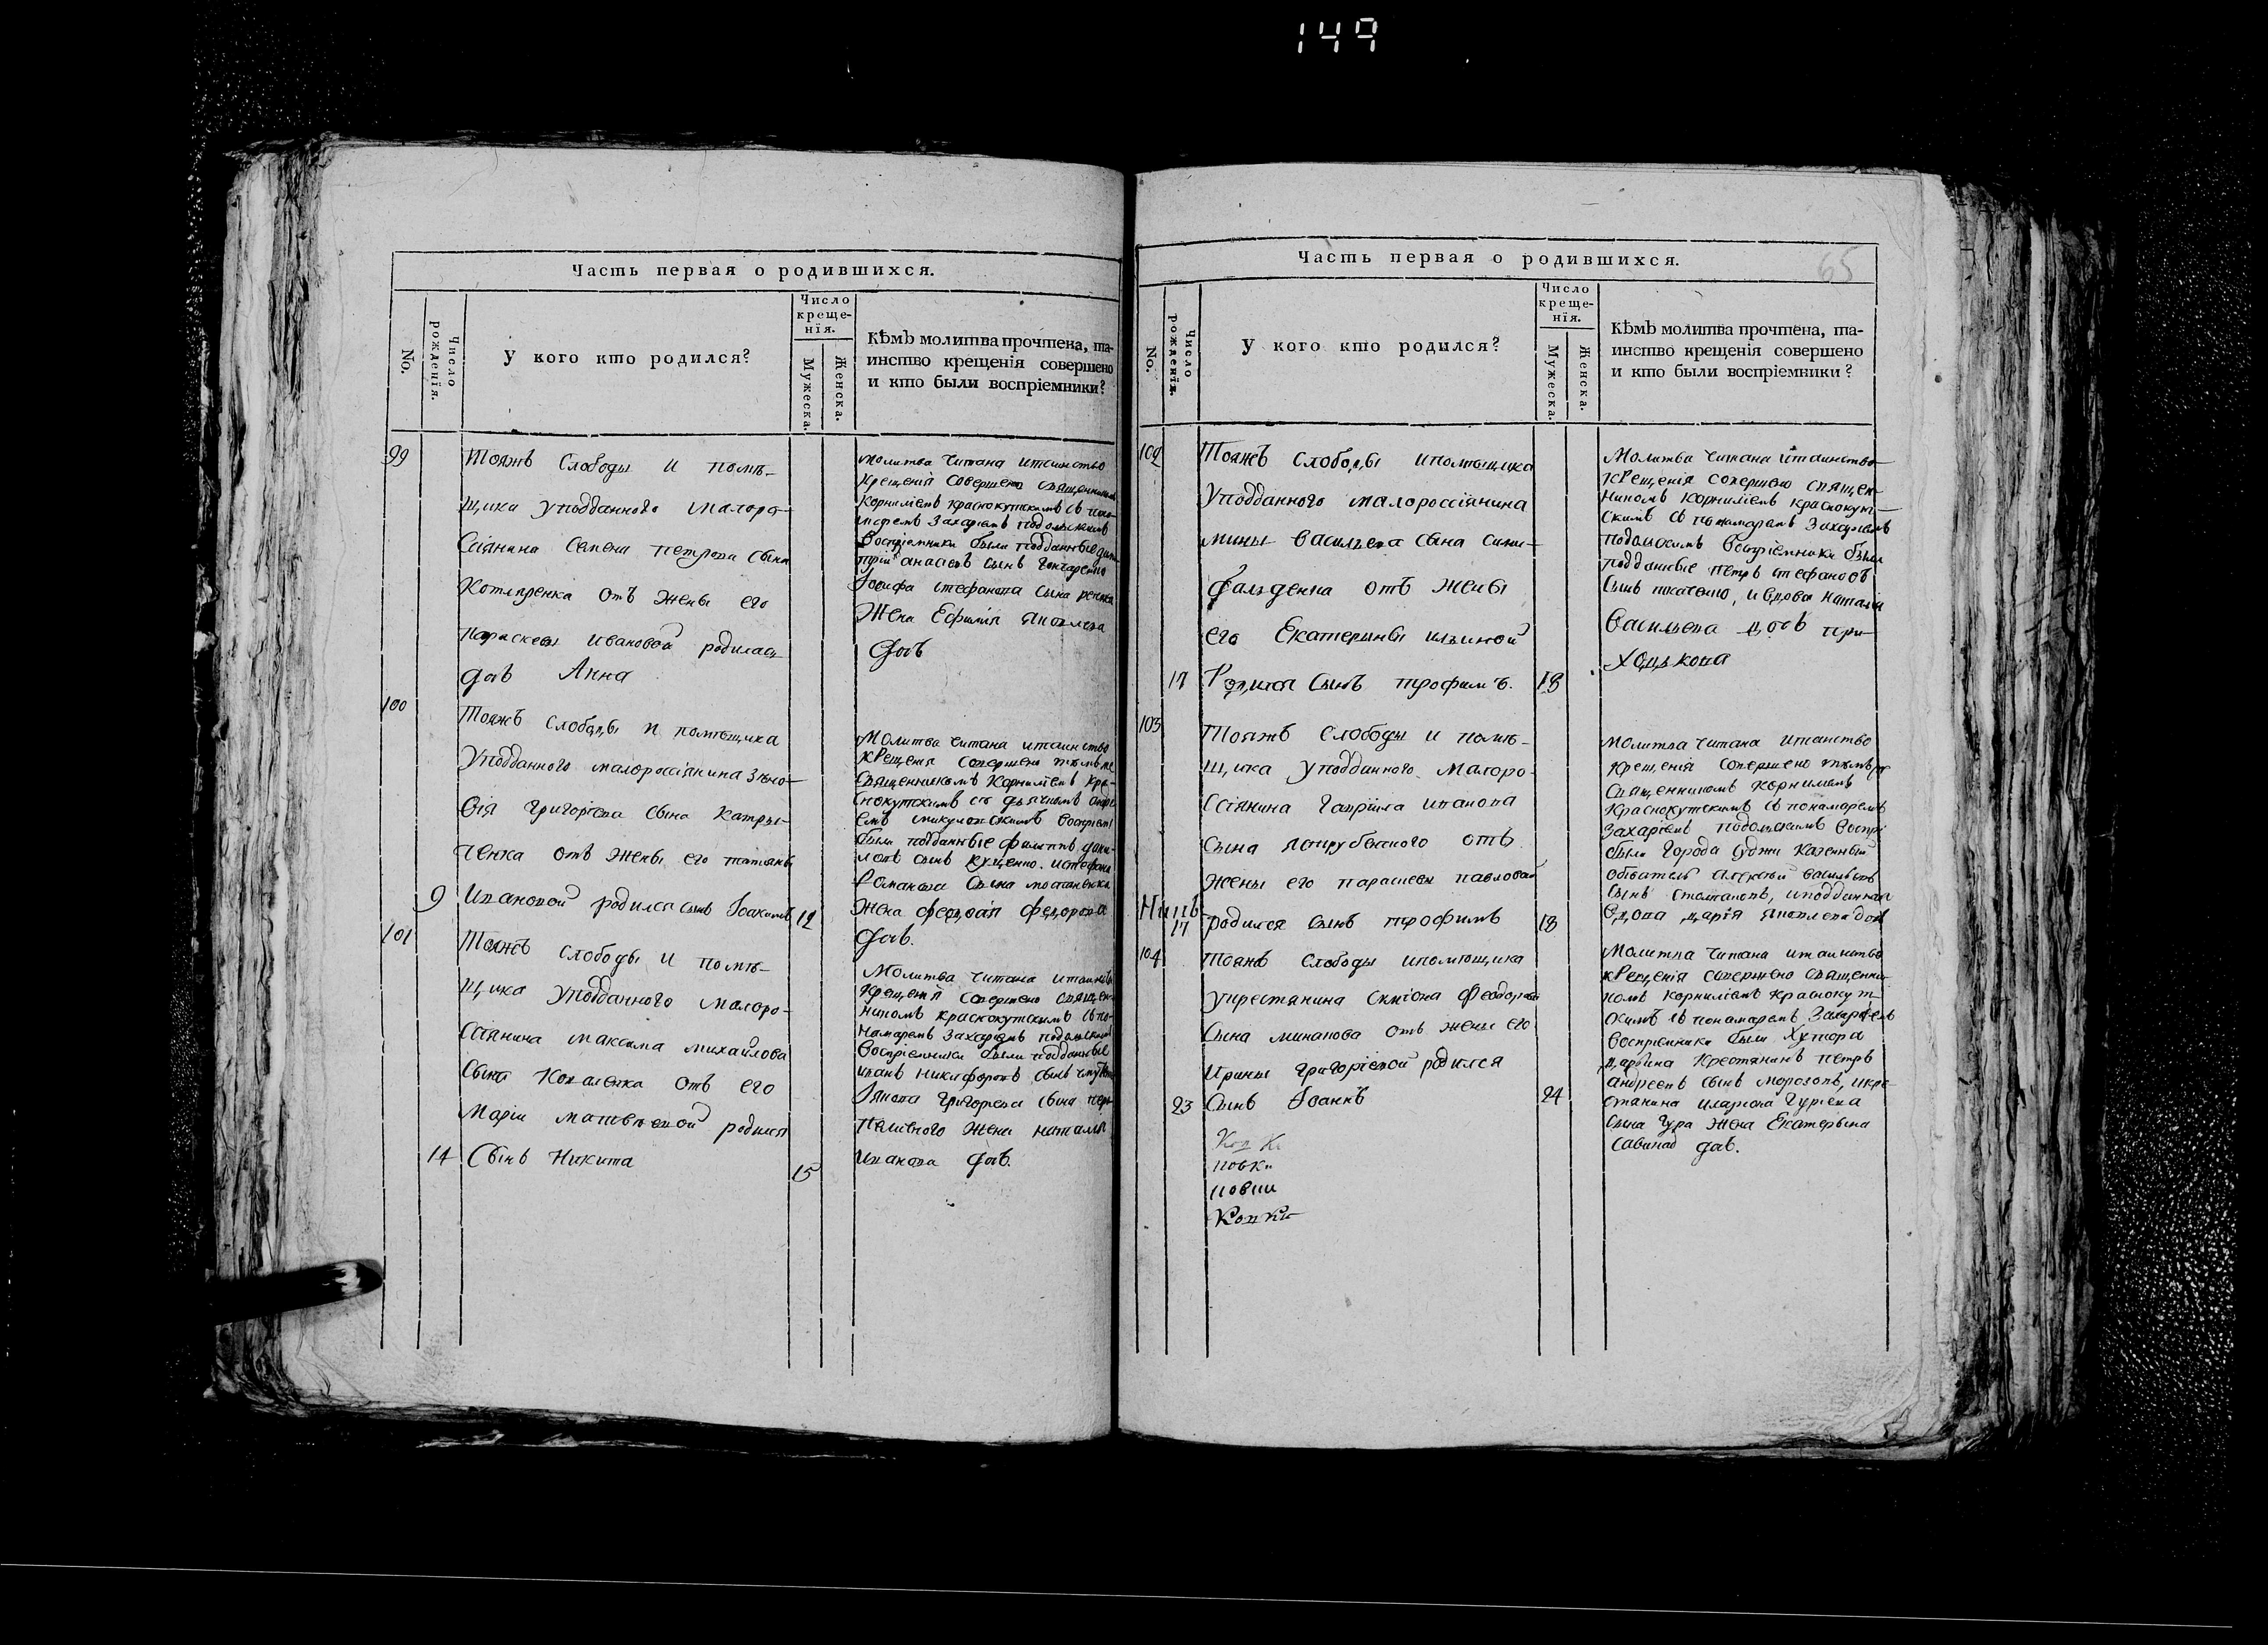 149
Часть первая о родившихся.
No.
Число рожденія.
У кого кто родился?
Число креще-
нія.
Мужеска.
Женска.
Кѣмъ молитва прочтена, та-
инство крещенія совершено
и кто были воспріемники?
99
Тояжъ Слободы и помѣ-
щика уподданного малоро-
Ссіянина Семена петрова сына
Котляренка отъ жены его
параскевы ивановой родилась
дочь Анна
молитва читана итаинство
Крещенія совершено священником
Корниліемъ краснокутскимъ съ поно-
маремъ Захаріемъ подольскимъ
Воспріемники были подданные
сынъ гончаренко
Іосифа стефанова сына
Жена Ефимія яковлева
дочь
100
Тояжъ слободы и помѣщика
Уподданного малороссіянина Зѣно-
вія григоріева сына катри-
ченка отъ жены его татьяны
9 Ивановой родился сынъ Іоакимъ 12
Молитва читана итаинство
крещенія совершено тѣмъ же
Священникомъ Корниліемъ кра-
снокутскимъ съ дьячкомъ
были подданные филиппъ
сынъ куценко. истефана
Романова сына
жена федосія федорова
дочь.
101
Тояжъ слободы и помѣ-
щика уподданного малоро-
ссіянина максима михайлова
сына Коваленка отъ его
Маріи матвѣевой родился
14 Сынъ Никита 15
Молитва читана итаинство
крещенія совершено священ-
никомъ краснокутскимъ съ по-
намаремъ Захаріемъ подольскимъ
Воспріемники были подданные
иванъ никифоровъ сынъ
григорьева сына
жена наталья
Иванова дочь.
Часть первая о родившихся.
65
No.
Число рожденія.
У кого кто родился?
Число креще-
нія.
Мужеска.
Женска.
Кѣмъ молитва прочтена, та-
инство крещенія совершено
и кто были воспріемники?
102
Тояжъ слободы ипомѣщика
Уподданного малороссіянина
мины васильева сына
отъ жены
его Екатерины ильиной
17 Родился сынъ трофимъ. 18
Молитва читана итаинство
крещенія совершено священ-
никомъ корниліемъ краснокут-
скимъ съ понамаремъ Захаріемъ
подольскимъ воспріемники были
подданные петръ стефановъ
сынъ ивдова наталія
Васильева дочь при-
ходькова
103
Тояжъ слободы и помѣ-
щика уподданного малоро-
ссіянина гавріила иванова
сына яструбенского отъ
жены его параскевы павловой
17 родился сынъ трофимъ 18
молитва читана итаинство
крещенія совершено тѣмъ же
Священникомъ корниліемъ
краснокутскимъ съ понамаремъ
Захаріемъ подольскимъ воспрі
были города Суджи казенный
обыватель алексѣй васильевъ
сынъ иподданная
вдова дарія яковлева дочь
104
тояжъ слободы ипомѣщика
укрестянина Симіона Феодорова
сына минакова отъ жены его
Ирины григоріевой родился
23 Сынъ Іоаннъ 24
Молитва читана итаинство
крещенія совершено священни-
комъ корниліемъ краснокут-
скимъ съ понамаремъ Захаріемъ
воспріемники были Хутора
дарьина крестянинъ петръ
андреевъ сынъ морозовъ, икре-
стянина иларіона гуріева
сына гура жена Екатерина
Савина дочь.